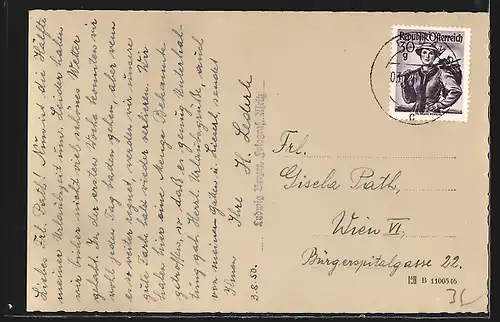 Liebes Frl. Path! Nun ist die Hälfte
meiner Urlaubszeit um. Leider haben
wir bisher nicht viel schönes Wetter
gehabt. In der ersten Woche konnten wir
wohl jeden Tag baden gehen, aber wenn
es so weiter regnet, werden wir unsere
gute Farbe bald wieder verlieren. Wir
haben hier eine Menge Bekannte
getroffen, so daß er genug Unterhal-
tung gab. Herzl. Urlaubsgrüße, auch
von meinem Gatten u. sendet
Ihnen Ihre H. Lederh
3.8.50.
Ludwig Fotograf,
Republik Österreich
30 g
Frl.
Gisela Path,
Wien VI,
Bürgerspitalgasse 22.
B 1100546